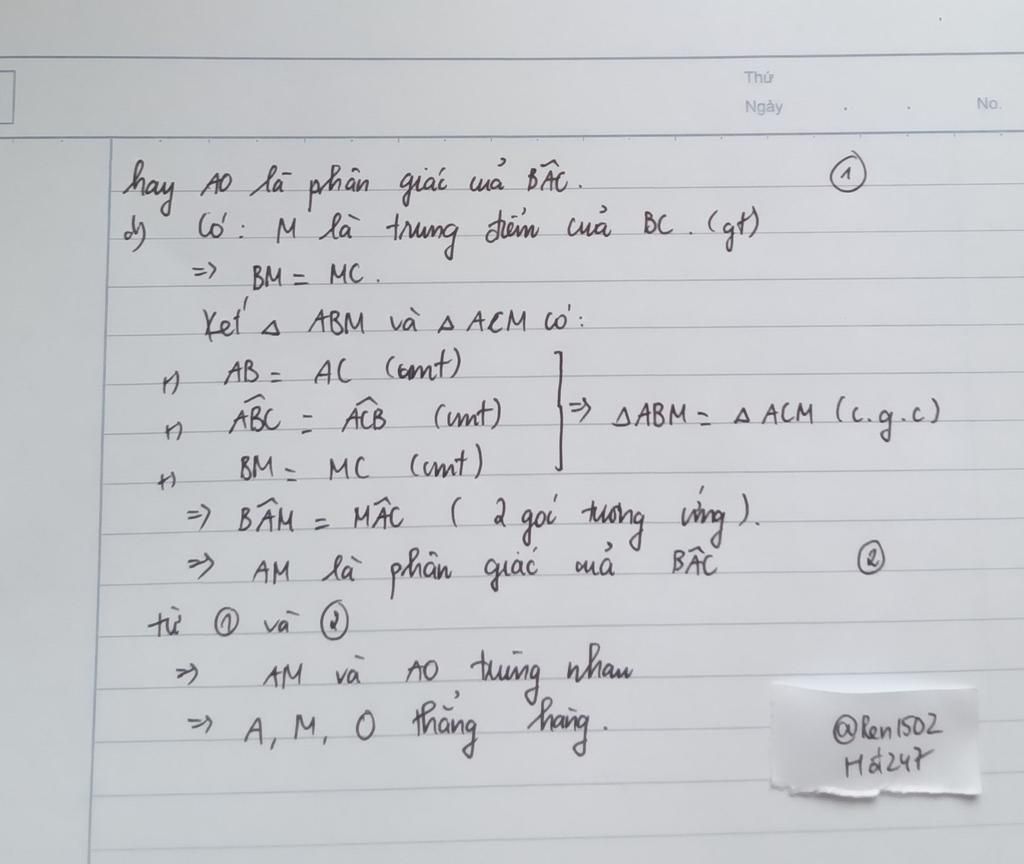 Thứ
Ngày . . No.
hay AO là phân giác của BÂC. ①
d) Có: M là trung điểm của BC. (gt)
=> BM = MC.
Xét △ ABM và △ ACM có:
+) AB = AC (cmt)
+) ABC = ACB (cmt) => △ABM = △ ACM (c.g.c)
+) BM = MC (cmt)
=> BÂM = MÂC ( 2 góc tương ứng ).
=> AM là phân giác của BÂC ②
từ ① và ②
=> AM và AO trùng nhau
=> A, M, O thẳng hàng.
@Ren1502
H đ247